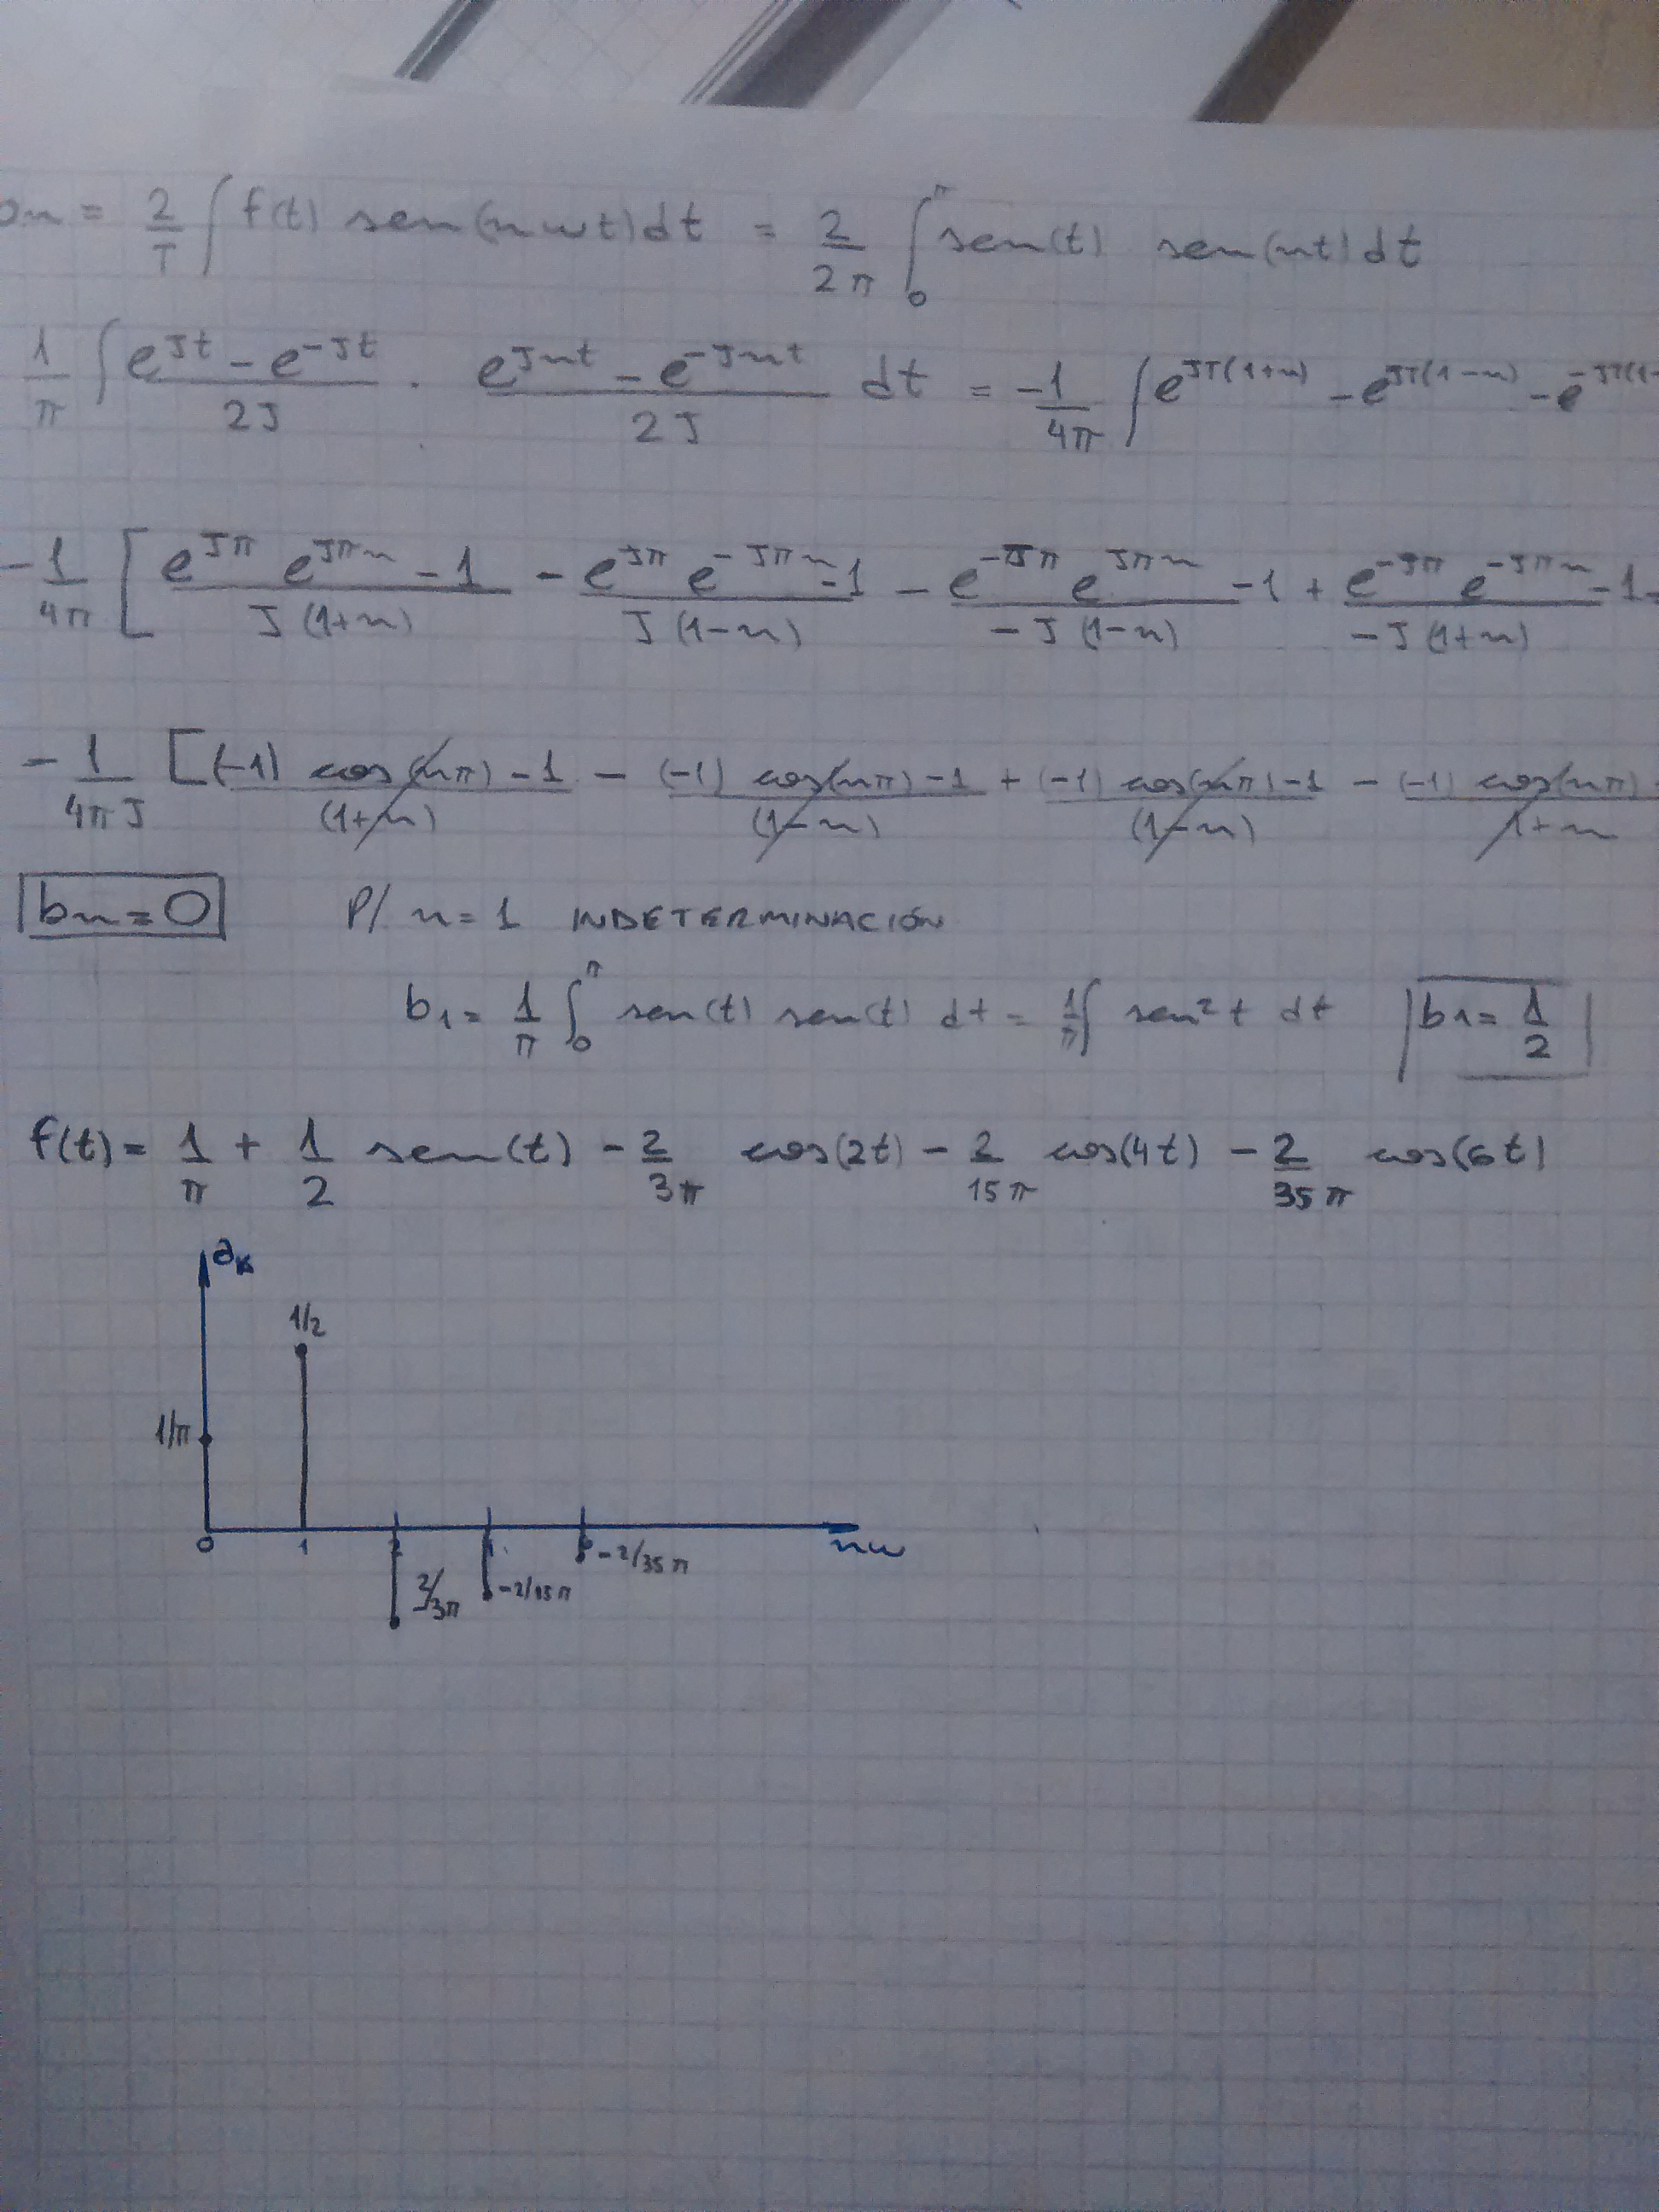 bn = 2/T ∫ f(t) sen(nwt)dt = 2/2π ∫₀^π sen(t) sen(nt)dt
1/π ∫ (e^Jt - e^-Jt)/2J · (e^Jnt - e^-Jnt)/2J dt = -1/4π ∫ e^JT(1+n) - e^JT(1-n) - e^-JT(1-
-1/4π [ (e^Jπ e^Jπn - 1)/J(1+n) - (e^Jπ e^-Jπn - 1)/J(1-n) - (e^-Jπ e^Jπn - 1)/-J(1-n) + (e^-Jπ e^-Jπn - 1)/-J(1+n)
-1/4πJ [ ((-1) cos(nπ) - 1)/(1+n) - ((-1) cos(nπ) - 1)/(1-n) + ((-1) cos(nπ) - 1)/(1-n) - ((-1) cos(nπ)/1+n
bn = 0 P/ n = 1 INDETERMINACIÓN
b1 = 1/π ∫₀^π sen(t) sen(t) dt = 1/π ∫ sen²t dt b1 = 1/2
f(t) = 1/π + 1/2 sen(t) - 2/3π cos(2t) - 2/15π cos(4t) - 2/35π cos(6t)
ak
1/2
1/π
0 1 2 nw
2/3π -2/15π -2/35π